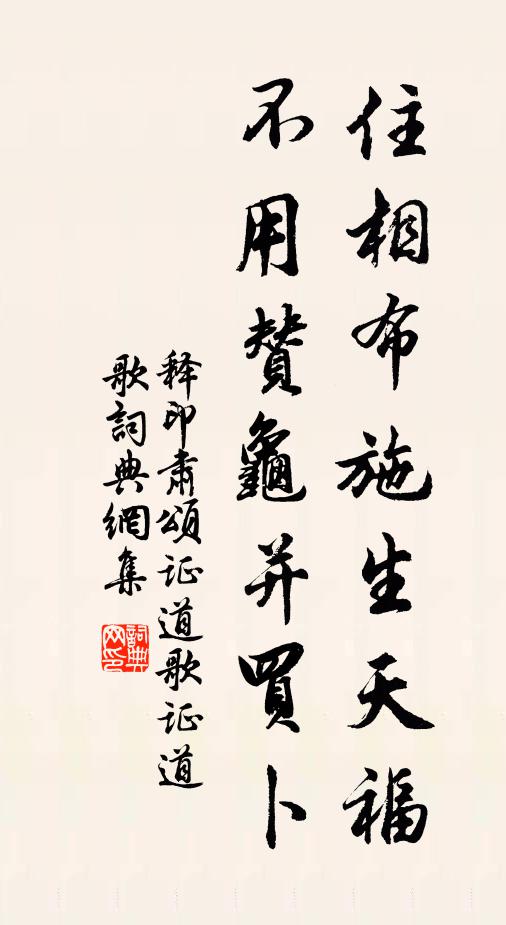 住相布施生天福
不用賛龜并買卜
释印肅頌证道歌证道
歌詞典網集
詞典
网印